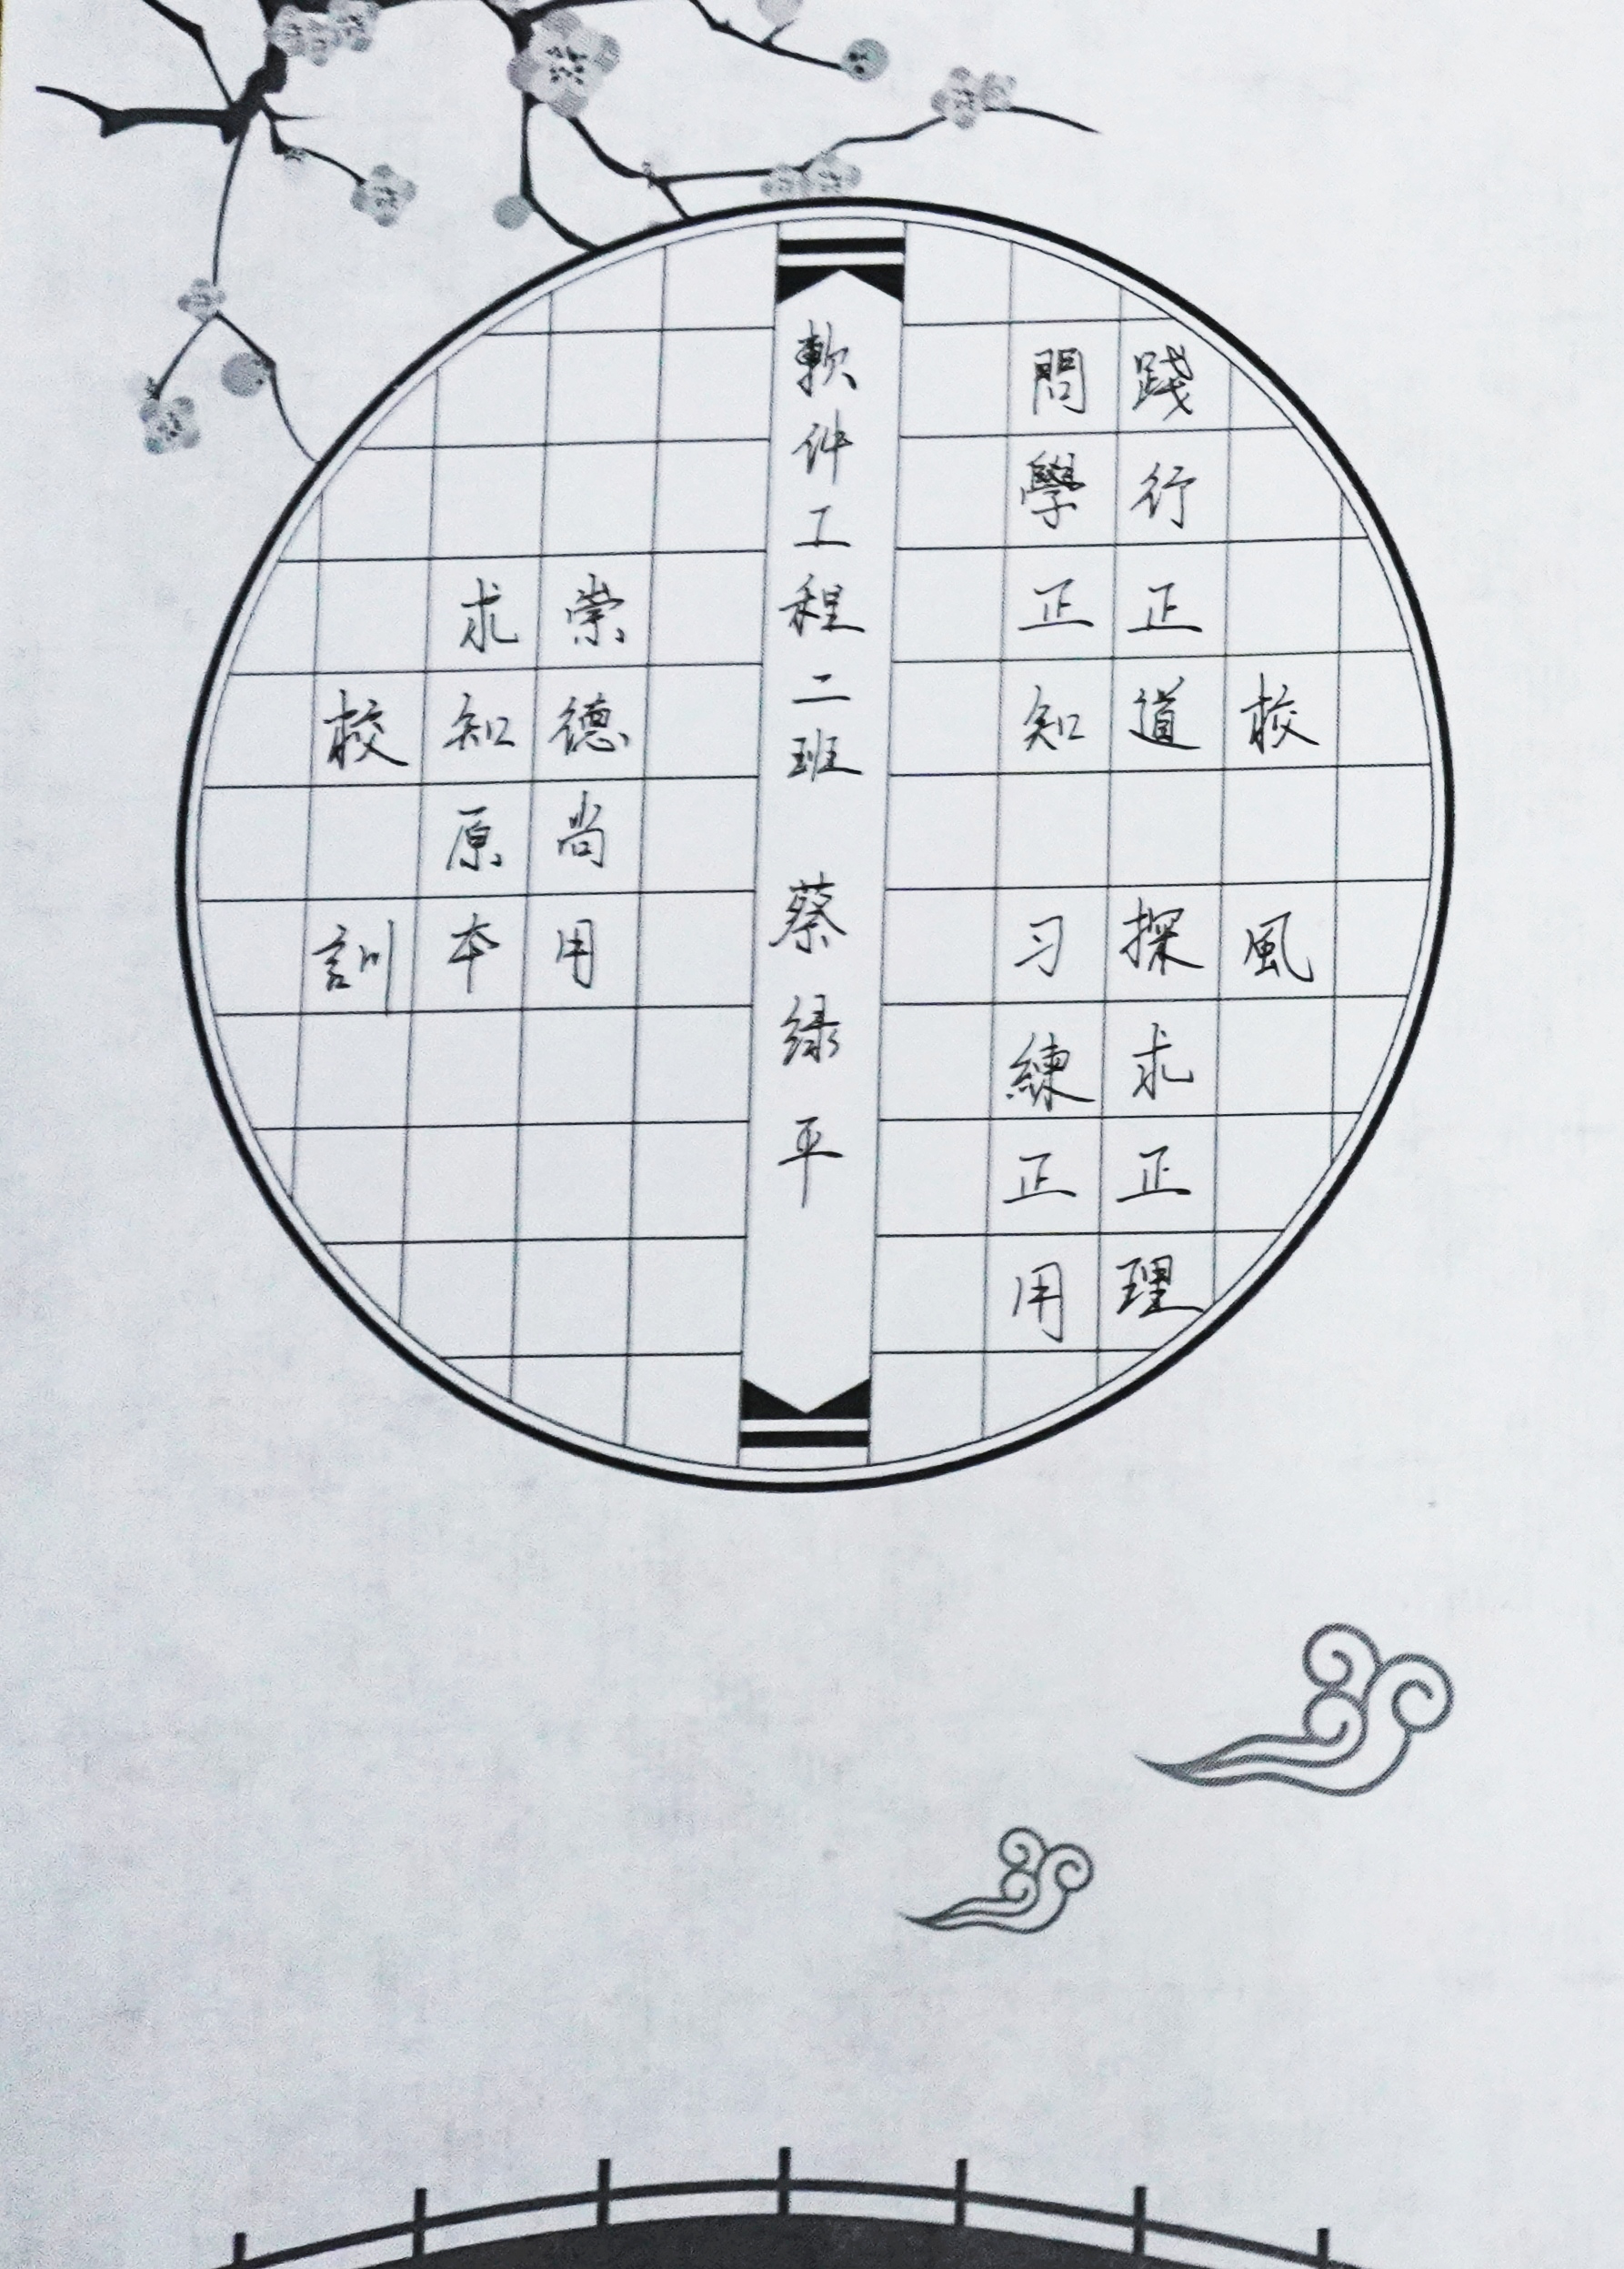 校風
踐行正道探求正理
問學正知习練正用
軟件工程二班 蔡绿平
崇德尚用
求知原本
校訓